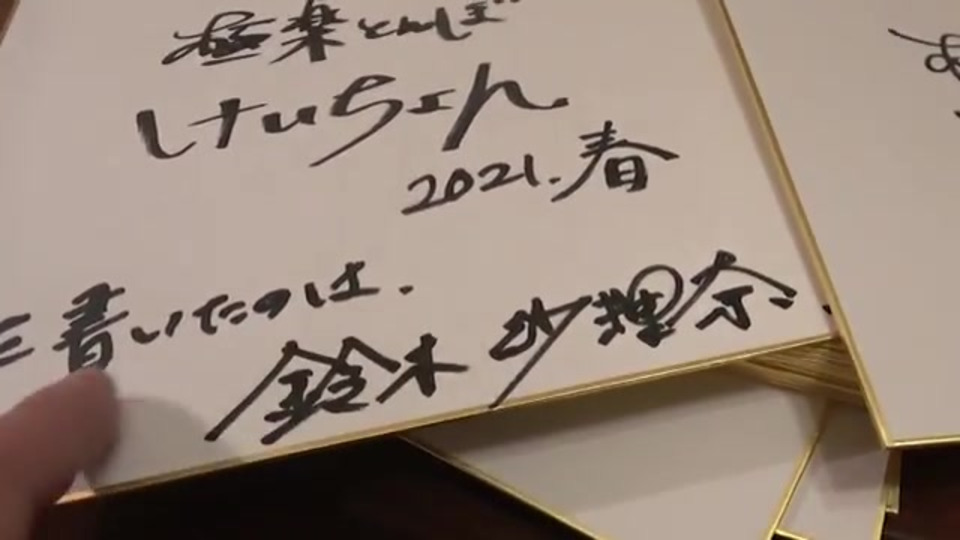 極楽とんぼ
けいちょん
2021.春
を書いたのは.
鈴木 紗理奈